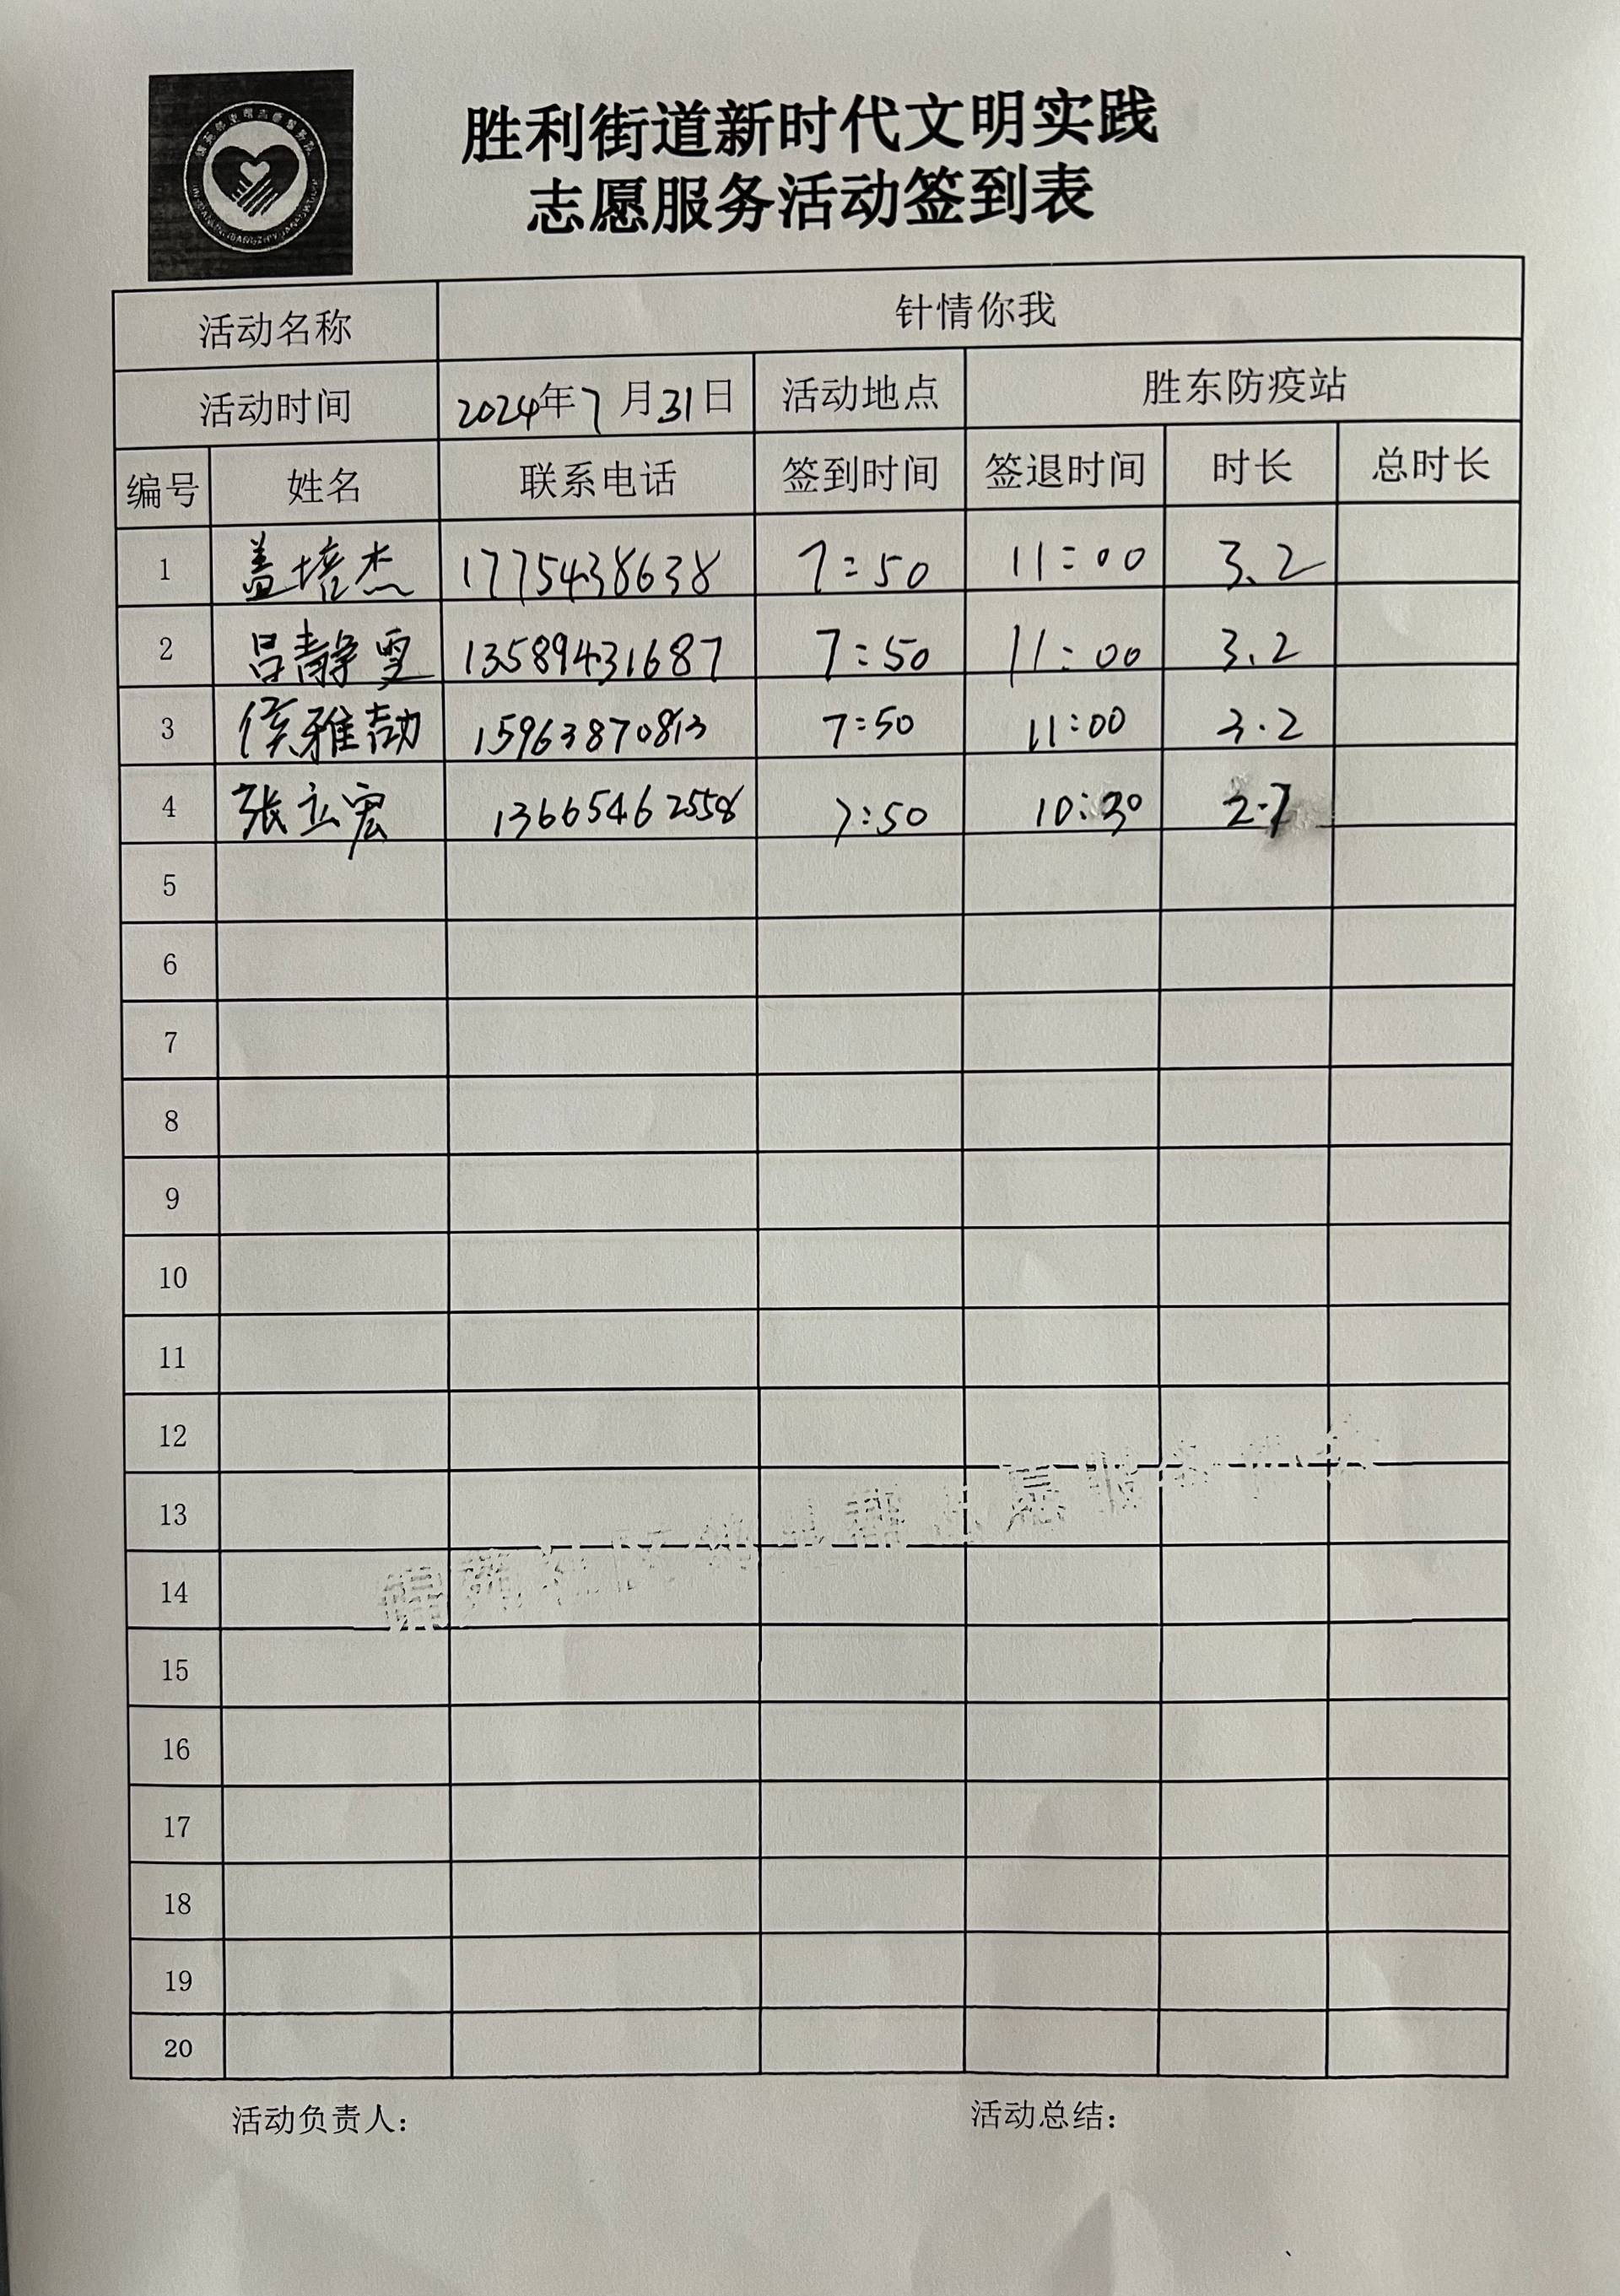 胜利街道新时代文明实践
志愿服务活动签到表
活动名称 针情你我
活动时间 2024年7月31日 活动地点 胜东防疫站
编号 姓名 联系电话 签到时间 签退时间 时长 总时长
1 盖培杰 1775438638 7:50 11:00 3.2
2 吕静雯 13589431687 7:50 11:00 3.2
3 侯雅喆 15963870813 7:50 11:00 3.2
4 张立宏 13665462558 7:50 10:30 2.7
5
6
7
8
9
10
11
12
13
14
15
16
17
18
19
20
活动负责人: 活动总结: